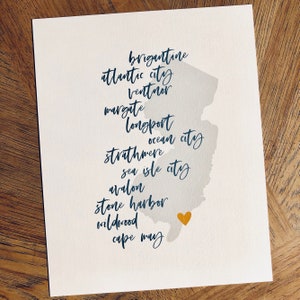 brigantine
atlantic city
ventnor
margate
longport
ocean city
strathmere
sea isle city
avalon
stone harbor
wildwood
cape may